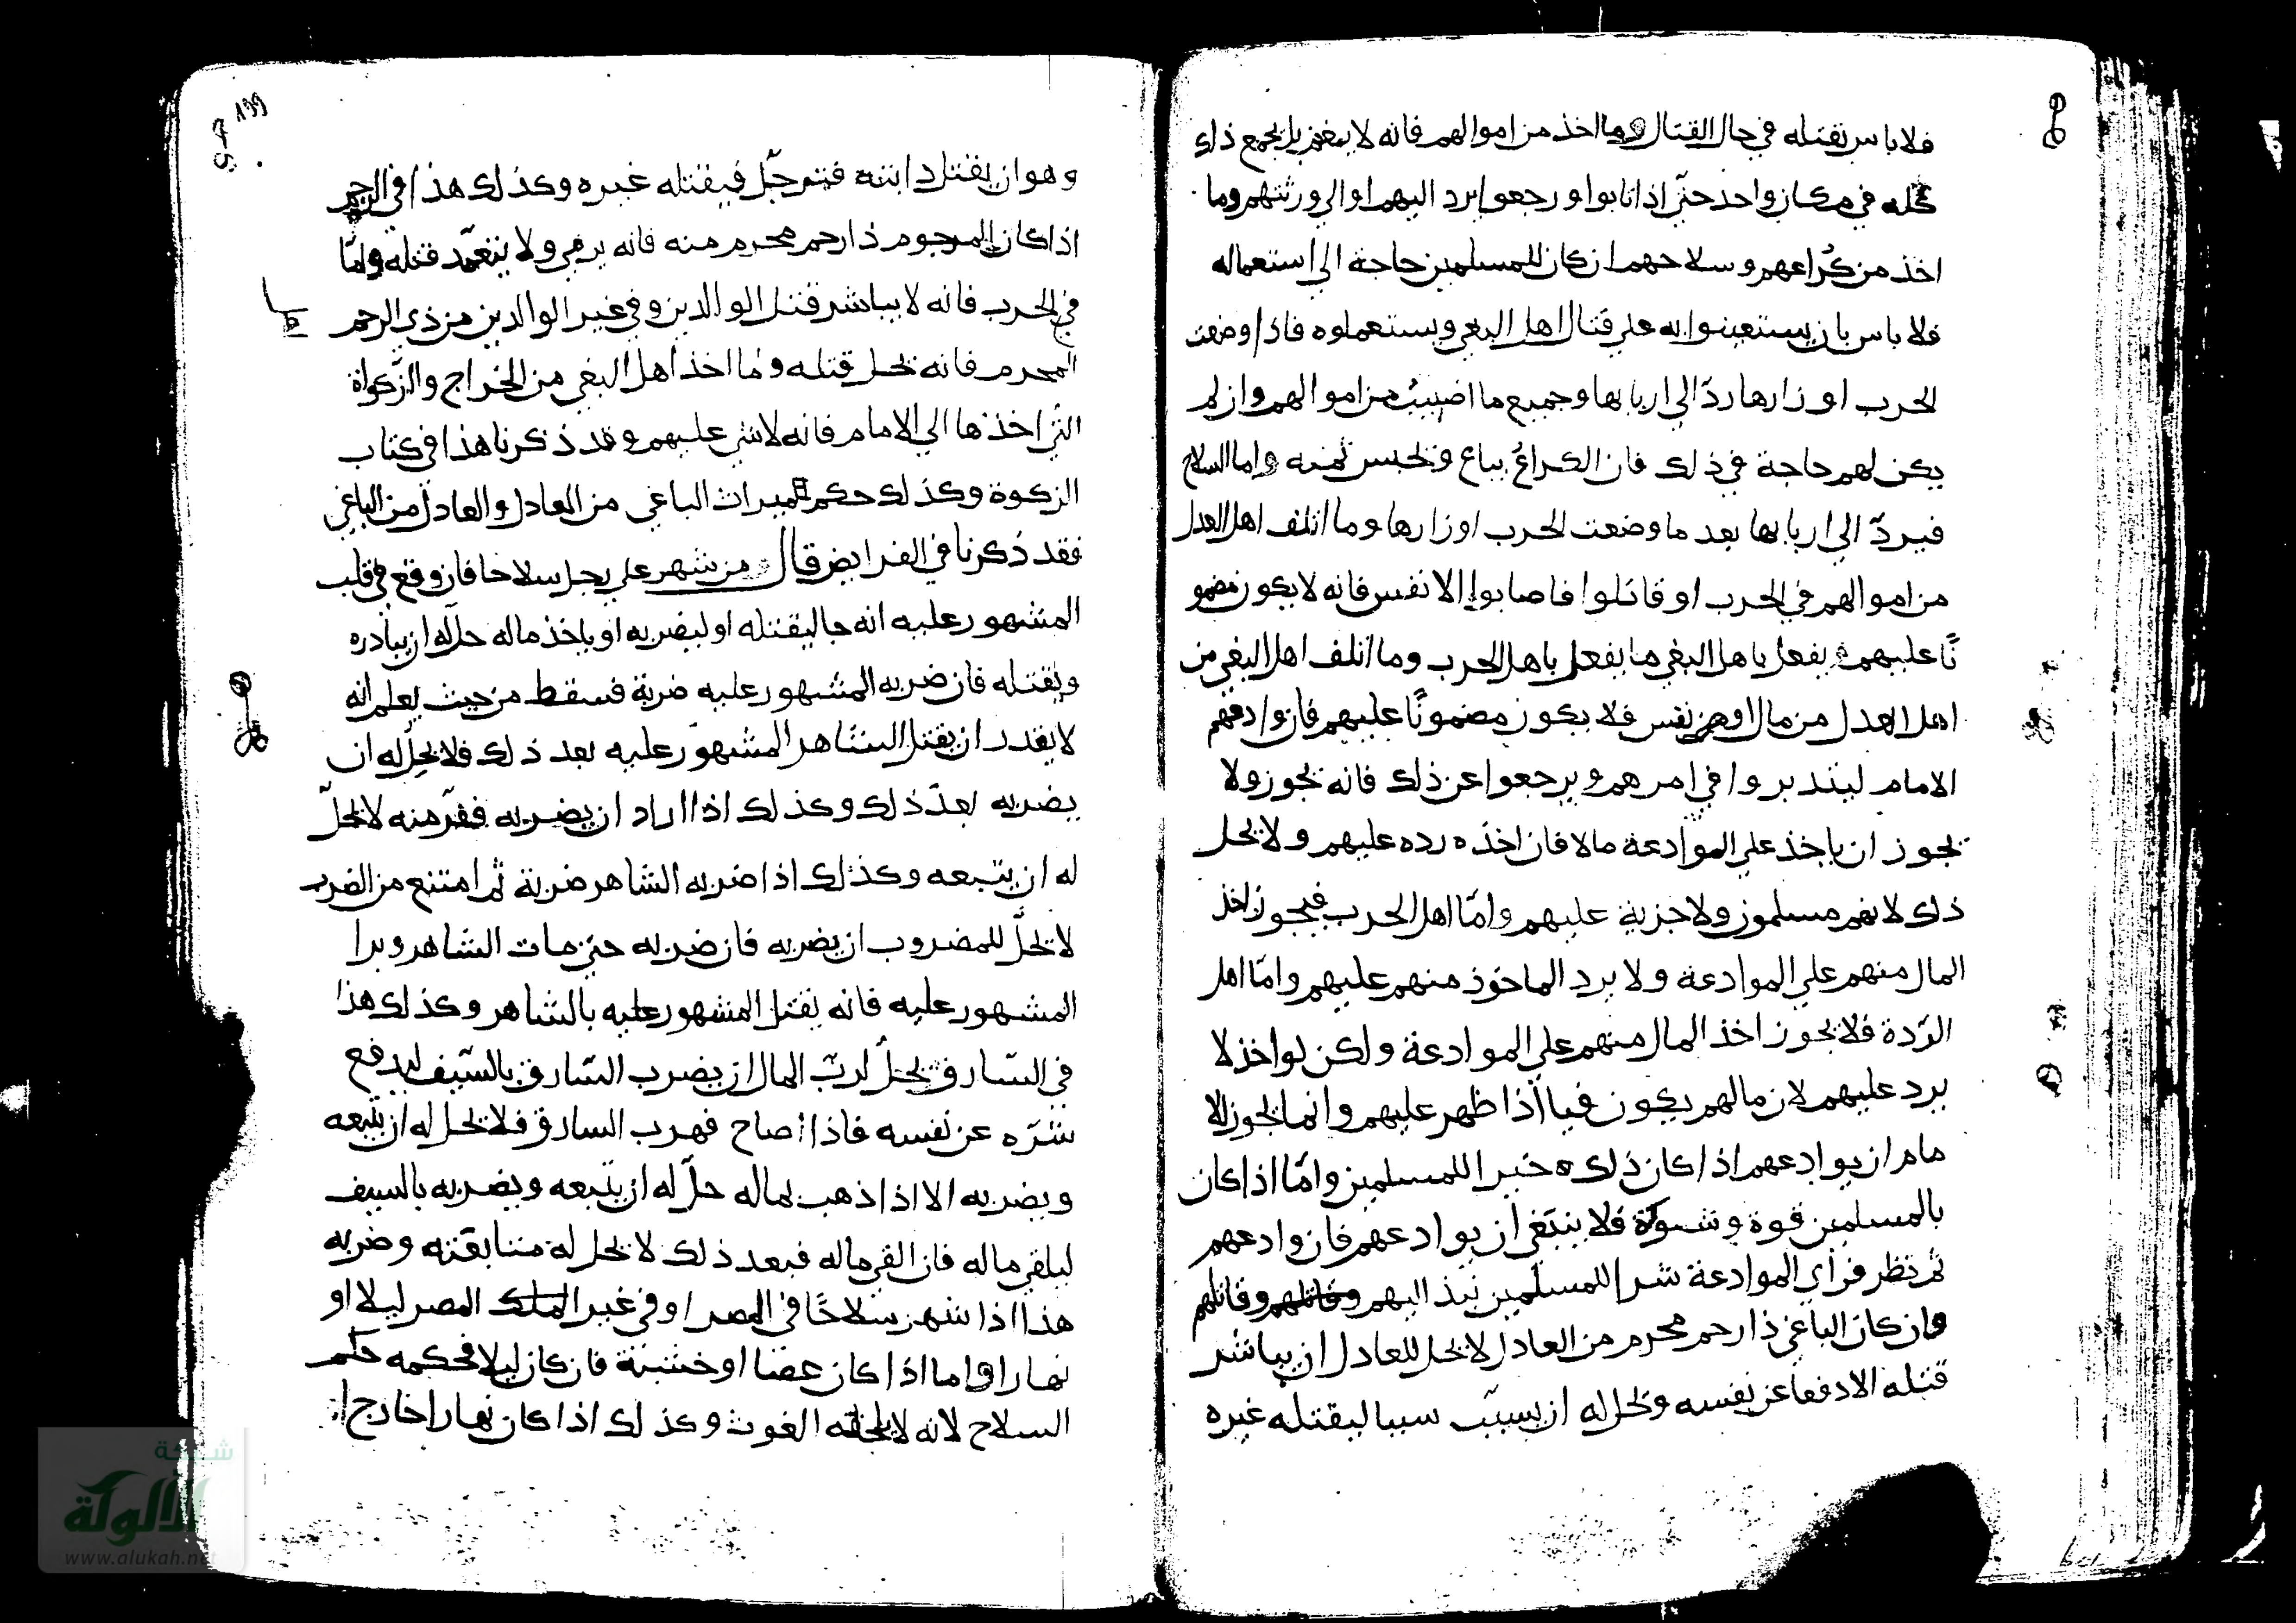 فلا باس بقتله في حال القتال وما اخذ من اموالهم فانه لا يغنم بل يجمع ذلك
كله في مكان واحد حتى اذا تابوا ورجعوا يرد اليهم او الي ورثتهم وما
اخذ من كراعهم وسلاحهم ان كان للمسلمين حاجة الي استعماله
فلا باس بان يستعينوا به علي قتال اهل البغي ويستعملوه فاذا وضعت
الحرب اوزارها ردّ الي اربابها وجميع ما اصيب من اموالهم وان لم
يكن لهم حاجة في ذلك فان الكراع يباع ويحبس ثمنه واما السلاح
فيردّ الي اربابها بعد ما وضعت الحرب اوزارها وما اتلف اهل العدل
من اموالهم في الحرب او قاتلوا فاصابوا الانفس فانه لا يكون مضمو
نًا عليهم يفعل باهل البغي ما يفعل باهل الحرب وما اتلف اهل البغي من
اهل العدل من مال او من نفس فلا يكون مضمونًا عليهم فان وادعهم
الامام ليتدبروا في امرهم ويرجعوا عن ذلك فانه يجوز ولا
يجوز ان ياخذ علي الموادعة مالا فان اخذه رده عليهم ولا يحل
ذلك لانهم مسلمون ولا جزية عليهم وامّا اهل الحرب فيجوز اخذ
المال منهم علي الموادعة ولا يرد الماخوذ منهم عليهم وامّا اهل
الرّدة فلا يجوز اخذ المال منهم علي الموادعة ولكن لو اخذ لا
يرد عليهم لان مالهم يكون فيا اذا ظهر عليهم وانما يجوز للا
مام ان يوادعهم اذا كان ذلك خيرا للمسلمين وامّا اذا كان
بالمسلمين قوة وشوكة فلا ينبغي ان يوادعهم فان وادعهم
ثم نظر فرأى الموادعة شرا للمسلمين نبذ اليهم وقاتلهم
وان كان الباغي ذا رحم محرم من العادل لا يحل للعادل ان يباشر
قتله الا دفعا عن نفسه ويحل له ان يسبّب سببا ليقتله غيره
١٩٩
وهو ان يقتل دابته فتوجّل فيقتله غيره وكذلك هذا في الرجم
اذا كان المرجوم ذا رحم محرم منه فانه يرمي ولا يتعمّد قتله وامّا
في الحرب فانه لا يباشر قتل الوالدين وفي غير الوالدين من ذي الرحم
المحرم فانه يحل قتله وما اخذ اهل البغي من الخراج والزكواة
التي اخذها الي الامام فانه لا شي عليهم وقد ذكرنا هذا في كتاب
الزكوة وكذلك حكم الميراث الباغي من العادل والعادل من الباغي
فقد ذكرنا في الفرايض قال من شهر علي رجل سلاحا فان وقع في قلب
المشهور عليه انه جا ليقتله او ليضربه او ياخذ ماله حلّ له ان يبادره
ويقتله فان ضربه المشهور عليه ضربة فسقط من حيث يعلم انه
لا يقدر ان يقتل الشاهر المشهور عليه بعد ذلك فلا يحلّ له ان
يضربه بعد ذلك وكذلك اذا اراد ان يضربه ففرّ منه لا يحلّ
له ان يتبعه وكذلك اذا ضربه الشاهر ضربة ثم امتنع من الضرب
لا يحلّ للمضروب ان يضربه فان ضربه حتي مات الشاهر وبرا
المشهور عليه فانه يقتل المشهور عليه بالشاهر وكذلك هذا
في السّارق يحلّ لربّ المال ان يضرب السّارق بالسّيف ليدفع
شرّه عن نفسه فاذا صاح فهرب السارق فلا يحل له ان يتبعه
ويضربه الا اذا ذهب بماله حلّ له ان يتبعه ويضربه بالسيف
ليلقي ماله فان القي ماله فبعد ذلك لا يحل له متابعته وضربه
هذا اذا شهر سلاحًا في المصر او في غير المصر ليلا او
نهارا واما اذا كان عصا او خشبة فان كان ليلا فحكمه حكم
السلاح لانه لا يلحقه الغوث وكذلك اذا كان نهارا خارج
شبكة
الألوكة
www.alukah.net